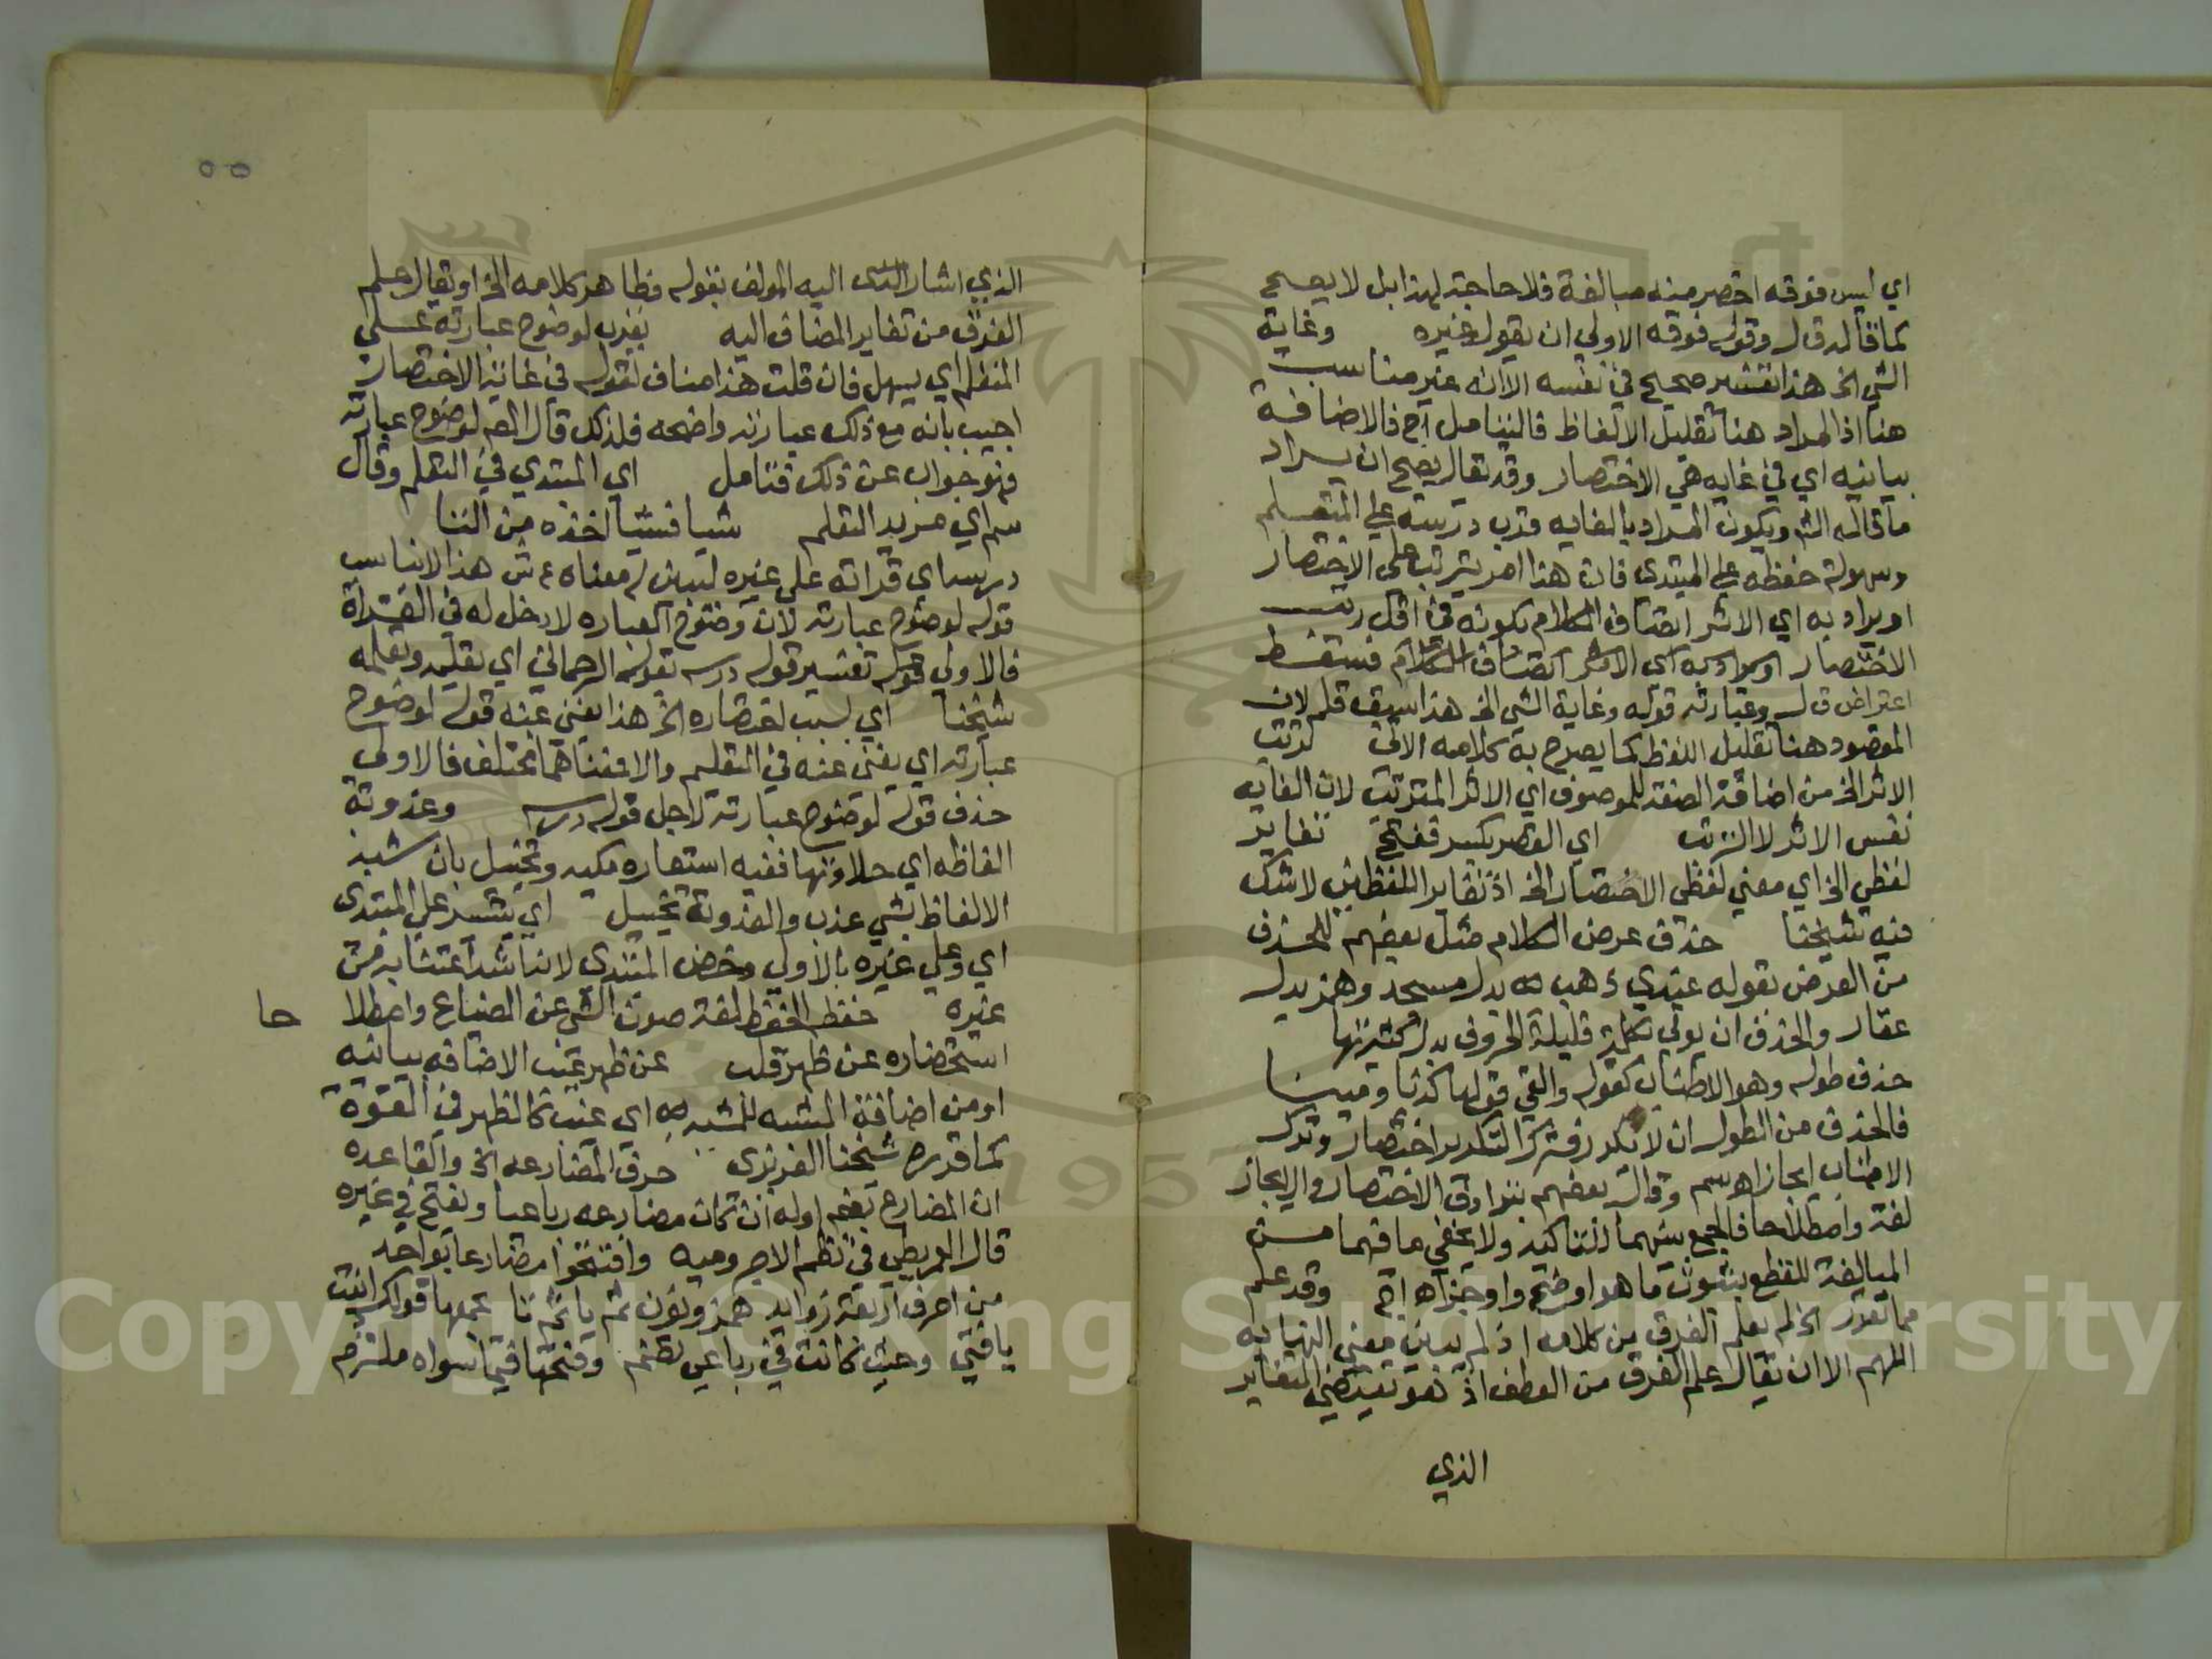 اي ليس فوقه اخصر منه مبالغة فلا حاجة لهذا بل لا يصح
كما قاله ق ل وقوله فوقه الاولى ان يقول غيره وغاية
الشي الخ هذا تفسير صحيح في نفسه الا انه غير مناسب
هنا اذ المراد هنا تقليل الالفاظ فاليتامل اج فالاضافة
بيانيه اي في غايه هي الاختصار وقد يقال يصح ان يراد
ما قاله الش ويكون المراد بالغايه قرب درسه علي المتعلم
وسهولة حفظه علي المبتدى فان هذا امر يترتب على الاختصار
او يراد به اي الاثر اتصاف الكلام بكونه في اقل رتب
الاختصار او يراد به اي الاثر اتصاف الكلام فسقط
اعتراض ق ل وعبارته قوله وغاية الشي الخ هذا سبق قلم لان
المقصود هنا تقليل اللفظ كما يصرح به كلامه الاتي ترتب
الاثر الخ من اضافة الصفة للموصوف اي الاثر المترتب لان الغايه
نفس الاثر لا الترتب اي القصر بكسر ففتح تغاير
لفظي الخ اي معنى لفظي الاختصار الخ اذ تغاير اللفظين لا شك
فيه شيخنا حذف عرض الكلام مثل بعضهم للحذف
من العرض بقوله عندي ذهب بدل مسجد وهنز بدل
عقار والحذف ان يوتى بكلمة قليلة الحروف بدل كثيرتها
حذف طوله وهو الاطناب كقوله والفي قولها كذبا ومينا
فالحذف من الطول ان لا تكرر فترك التكرير اختصار وترك
الاطناب ايجاز اه سم وقال بعضهم بترادف الاختصار والايجاز
لغة واصطلاحا فالجمع بينهما للتاكيد ولا يخفي ما فيهما من
المبالغة للقطع بثبوت ما هو اوضح واوجز اه اج وقد علم
مما تقرر الخ لم يعلم الفرق من كلامه اذ لم يبين معنى النهايه
اللهم الا ان يقال علم الفرق من العطف اذ هو يقتضي التغاير
الذي
٥٥
الذي اشار اليه المولف بقوله فظاهر كلامه الخ او يقال علم
الفرق من تغاير المضاف اليه يقرب لوضوح عبارته على
المتعلم اي يسهل فان قلت هذا مناف لقوله في غاية الاختصار
اجيب بانه مع ذلك عبارته واضحه فلذلك قال المص لوضوح عبارته
فهو جواب عن ذلك فتامل اي المبتدي في التعلم وقال
سم اي مريد التعلم شيا فشيا اخذه من التا
درسه اي قراته على غيره ليبين له معناه ع ش هذا لا يناسب
قوله لوضوح عبارته لان وضوح العباره لا دخل له في القراة
فالاولى تفسير قوله درسه بقول الرحماني اي تعليمه وتعلمه
شيخنا اي بسبب اختصاره الخ هذا يغني عنه قوله لوضوح
عبارته اي يغني عنه في التعلم والا فمعناهما مختلف فالاولى
حذف قوله لوضوح عبارته لاجل قوله درسه وعذوبة
الفاظه اي حلاوتها ففيه استعاره مكنيه وتخييل بان شبه
الالفاظ بشي عذب والعذوبة تخييل اي يتيسر علي المبتدى
اي وعلي غيره بالاولى وخص المبتدي لانه اشد اعتنا به من
غيره حفظه الحفظ لغة صون الشي عن الضياع واصطلا حا
استحضاره عن ظهر قلب عن ظهر غيب الاضافه بيانيه
او من اضافة المشبه للمشبه به اي غيب كالظهر في القوة
كما قرره شيخنا العزيزي حرف المضارعه الخ والقاعده
ان المضارع يضم اوله ان كان مضارعه رباعيا ويفتح في غيره
قال العمريطي في نظم الاجروميه وافتتحوا مضارعا بواحد
من احرف اربعة زوايد همز ونون ثم يا ثم تا يجمعها قولك انيت
يا فتي وحيث كانت في رباعي تضم وفتحها فيما سواه ملتزم